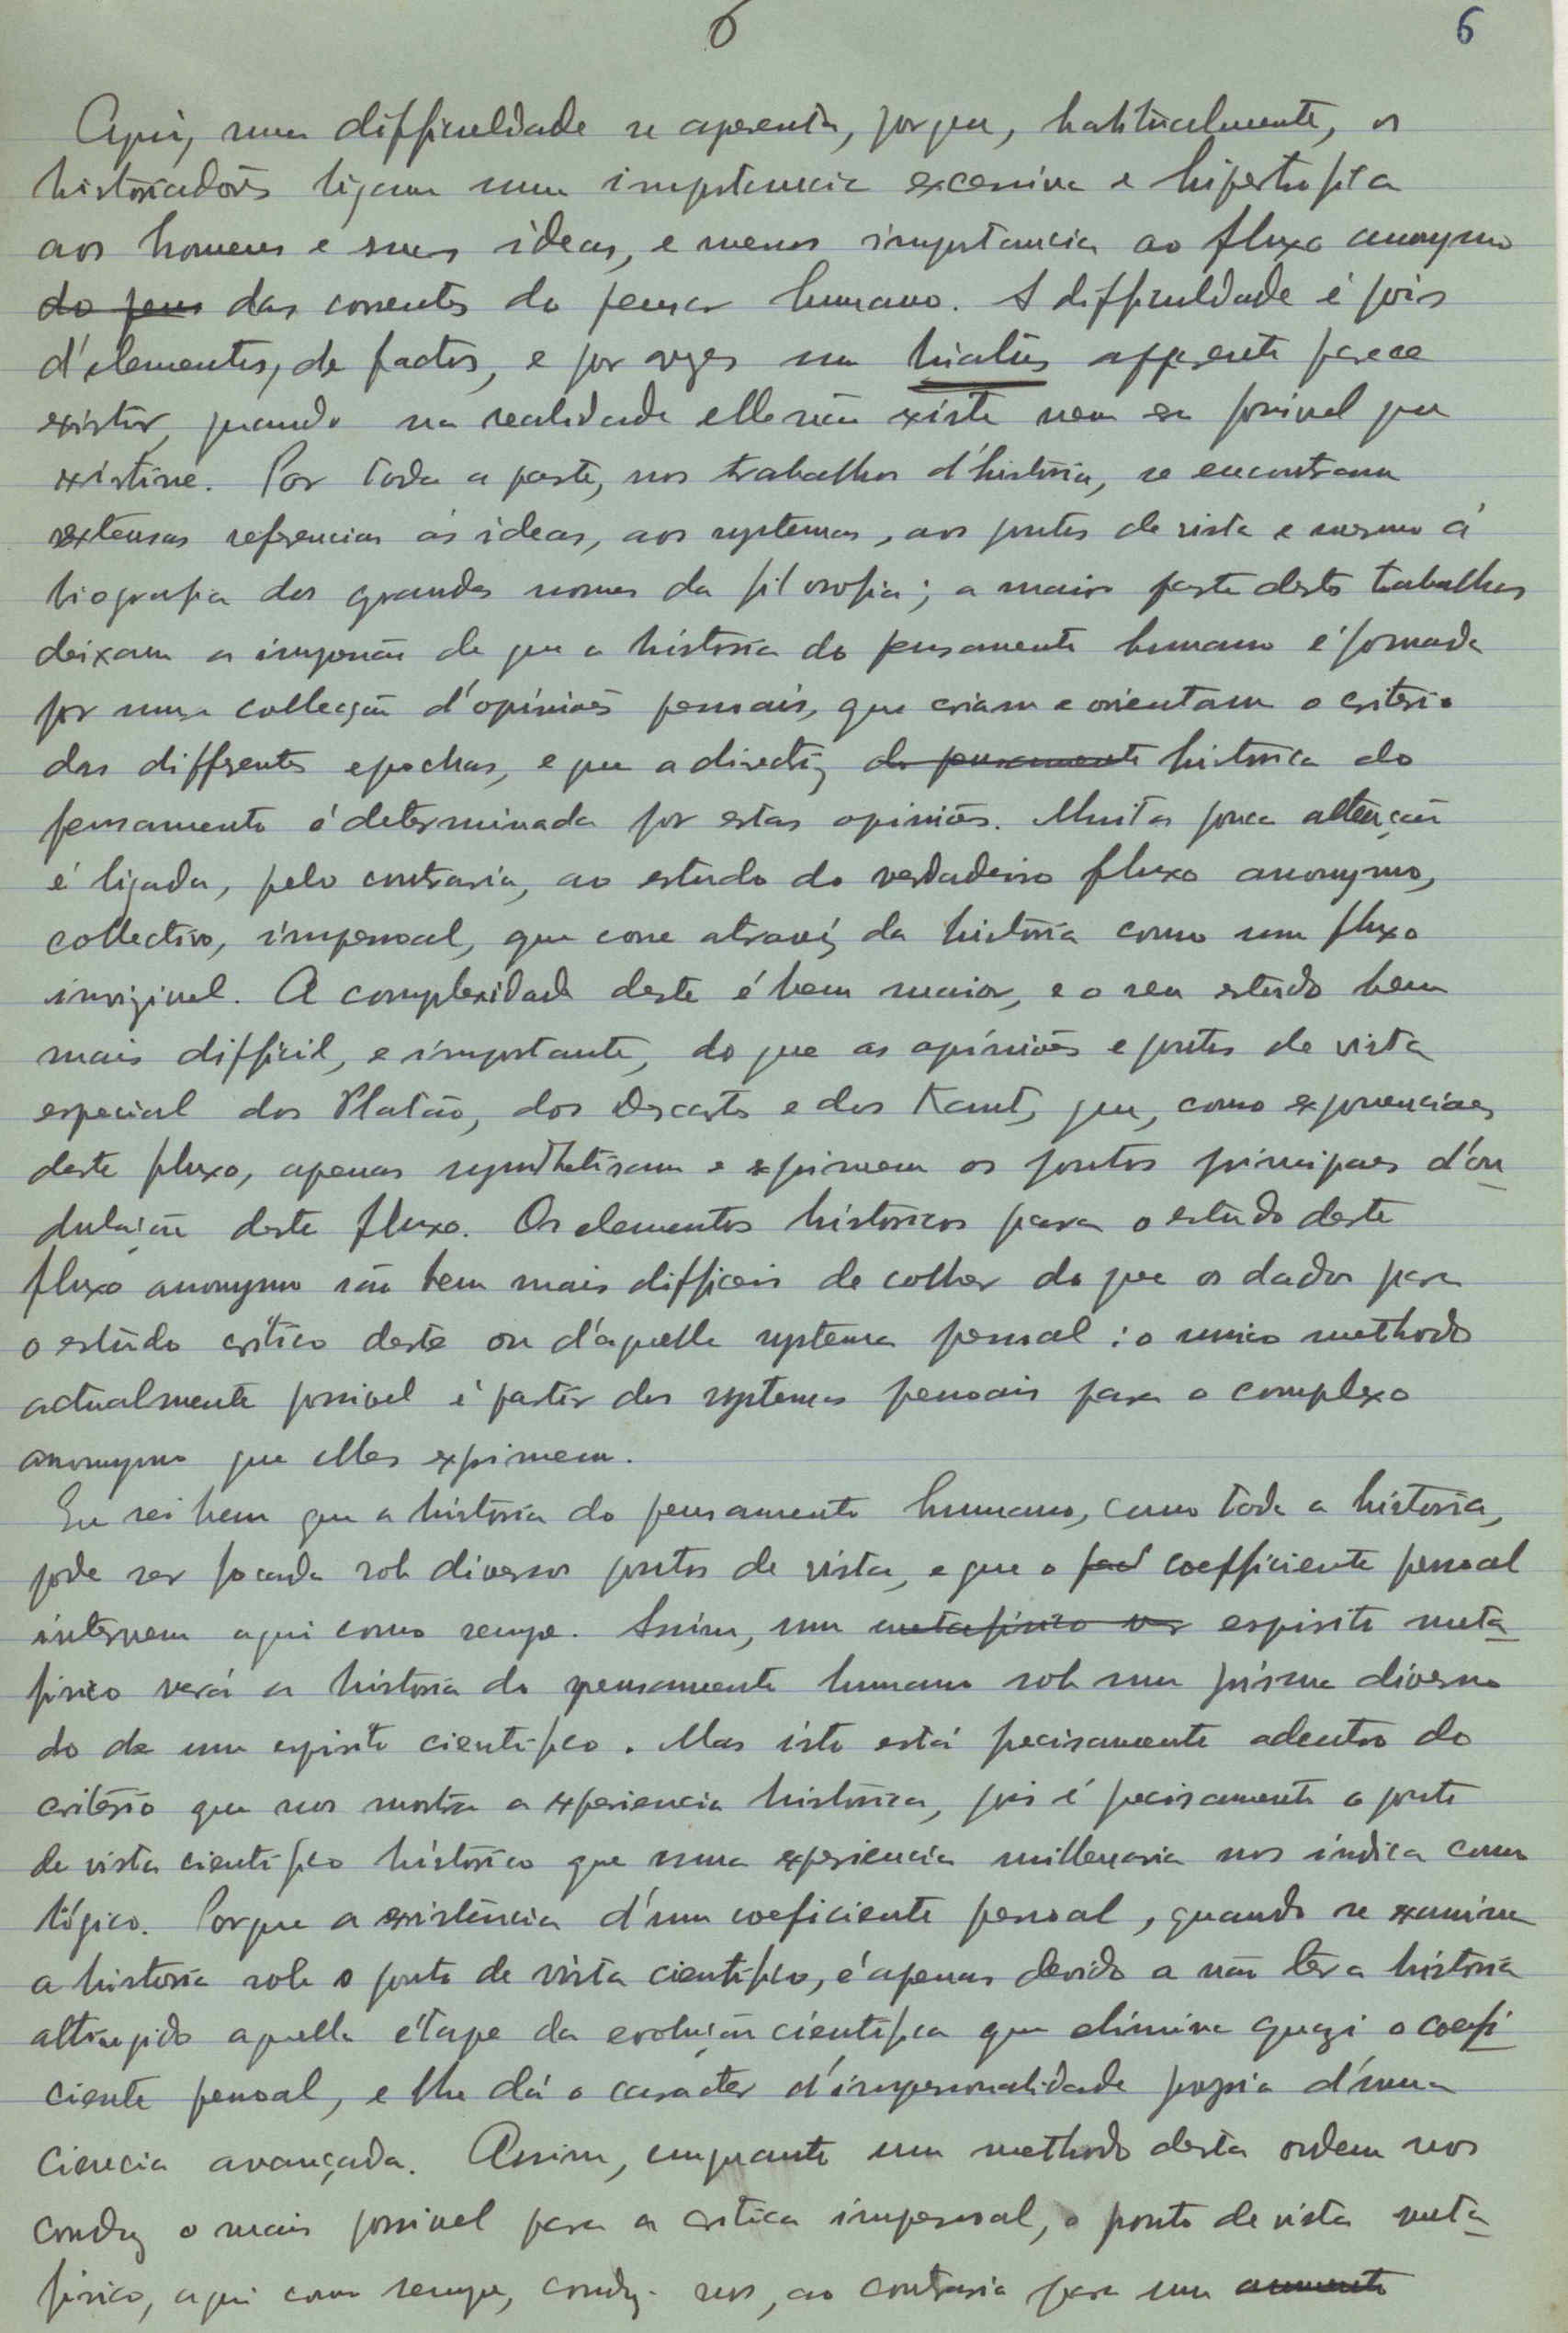 6 6
Aqui, uma difficuldade se apresenta, porque, habitualmente, os
historiadores ligam uma importancia excessiva e hipertrofica
aos homens e suas ideas, e menos importancia ao fluxo anonymo
do pens das correntes do pensar humano. A difficuldade é pois
d'elementos, de factos, e por vezes um hiatus apparente parece
existir, quando na realidade elle não existe nem era possivel que
existisse. Por toda a parte, nos trabalhos d'história, se encontram
extensas referencias ás ideas, aos systemas, aos pontos de vista e mesmo á
biografia dos grandes nomes da filosofia; a maior parte destes trabalhos
deixam a impressão de que a história do pensamento humano é formada
por uma collecção d'opiniões pessoais, que criam e orientam o criterio
das differentes epochas, e que a directriz do pensamento histórica do
pensamento é determinada por estas opiniões. Muita pouca attenção
é ligada, pelo contrario, ao estudo do verdadeiro fluxo anonymo,
collectivo, impessoal, que corre atravéz da história como um fluxo
invizivel. A complexidade deste é bem maior, e o seu estudo bem
mais difficil, e importante, do que as opiniões e pontos de vista
especial dos Platão, dos Descartes e dos Kant, que, como exponenciaes
deste fluxo, apenas synthetisam e exprimem os pontos principaes d'on
dulação deste fluxo. Os elementos históricos para o estudo deste
fluxo anonymo são bem mais difficeis de colher do que os dados para
o estudo critico deste ou d'aquelle systema pessoal: o unico methodo
actualmente possivel é partir dos systemas pessoais para o complexo
anonymo que elles exprimem.
Eu sei bem que a história do pensamento humano, como toda a história,
pode ser focada sob diversos pontos de vista, e que o coefficiente pessoal
intervem aqui como sempre. Assim, um metafísico ver espirito meta
fisico verá a história do pensamento humano sob um prisma diverso
do de um espirito cientifico. Mas isto está precisamente adentro do
critério que nos mostra a experiencia histórica, pois é precisamente o ponto
de vista cientifico histórico que uma experiencia millenaria nos indica como
lógico. Porque a existência d'um coeficiente pessoal, quando se examina
a história sob o ponto de vista cientifico, é apenas devido a não ter a história
attingido aquella étape da evolução cientifica que elimina quazi o coefi
ciente pessoal, e lhe dá o carácter d'impersonalidade propria d'uma
ciencia avançada. Assim, emquanto um methodo desta ordem nos
conduz o mais possivel para a critica impessoal, o ponto de vista meta
fisico, aqui como sempre, conduz-nos, ao contrario para um aumento